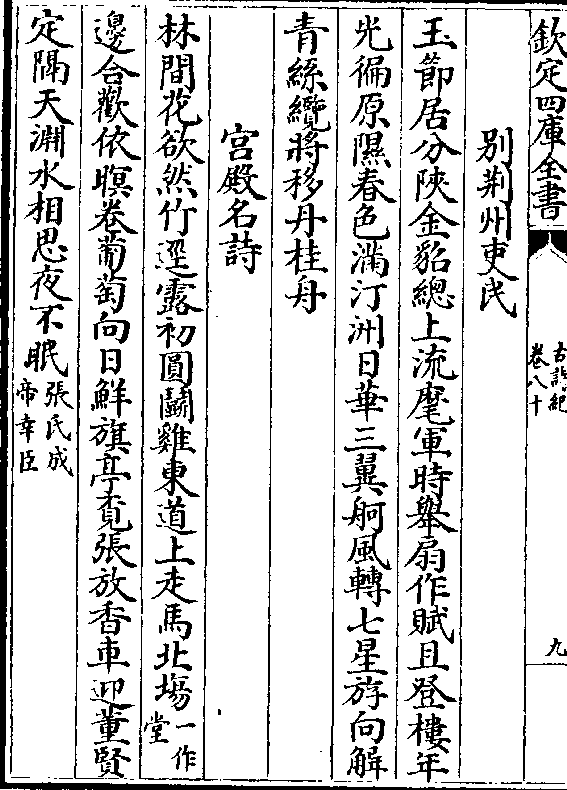 欽定四庫全書
古詩紀
卷八十
九
別荆州吏民
玉節居分陜金貂總上流麾軍時舉扇作賦且登樓年
光徧原隰春色滿汀洲日華三翼舸風轉七星斿向解
青絲纜將移丹桂舟
宫殿名詩
林間花欲然竹逕露初圓鬭雞東道上走馬北塲一作堂
邊合歡依暝卷葡萄向日鮮旗亭覔張放香車迎董賢
定隔天淵水相思夜不眠張氏成帝幸臣